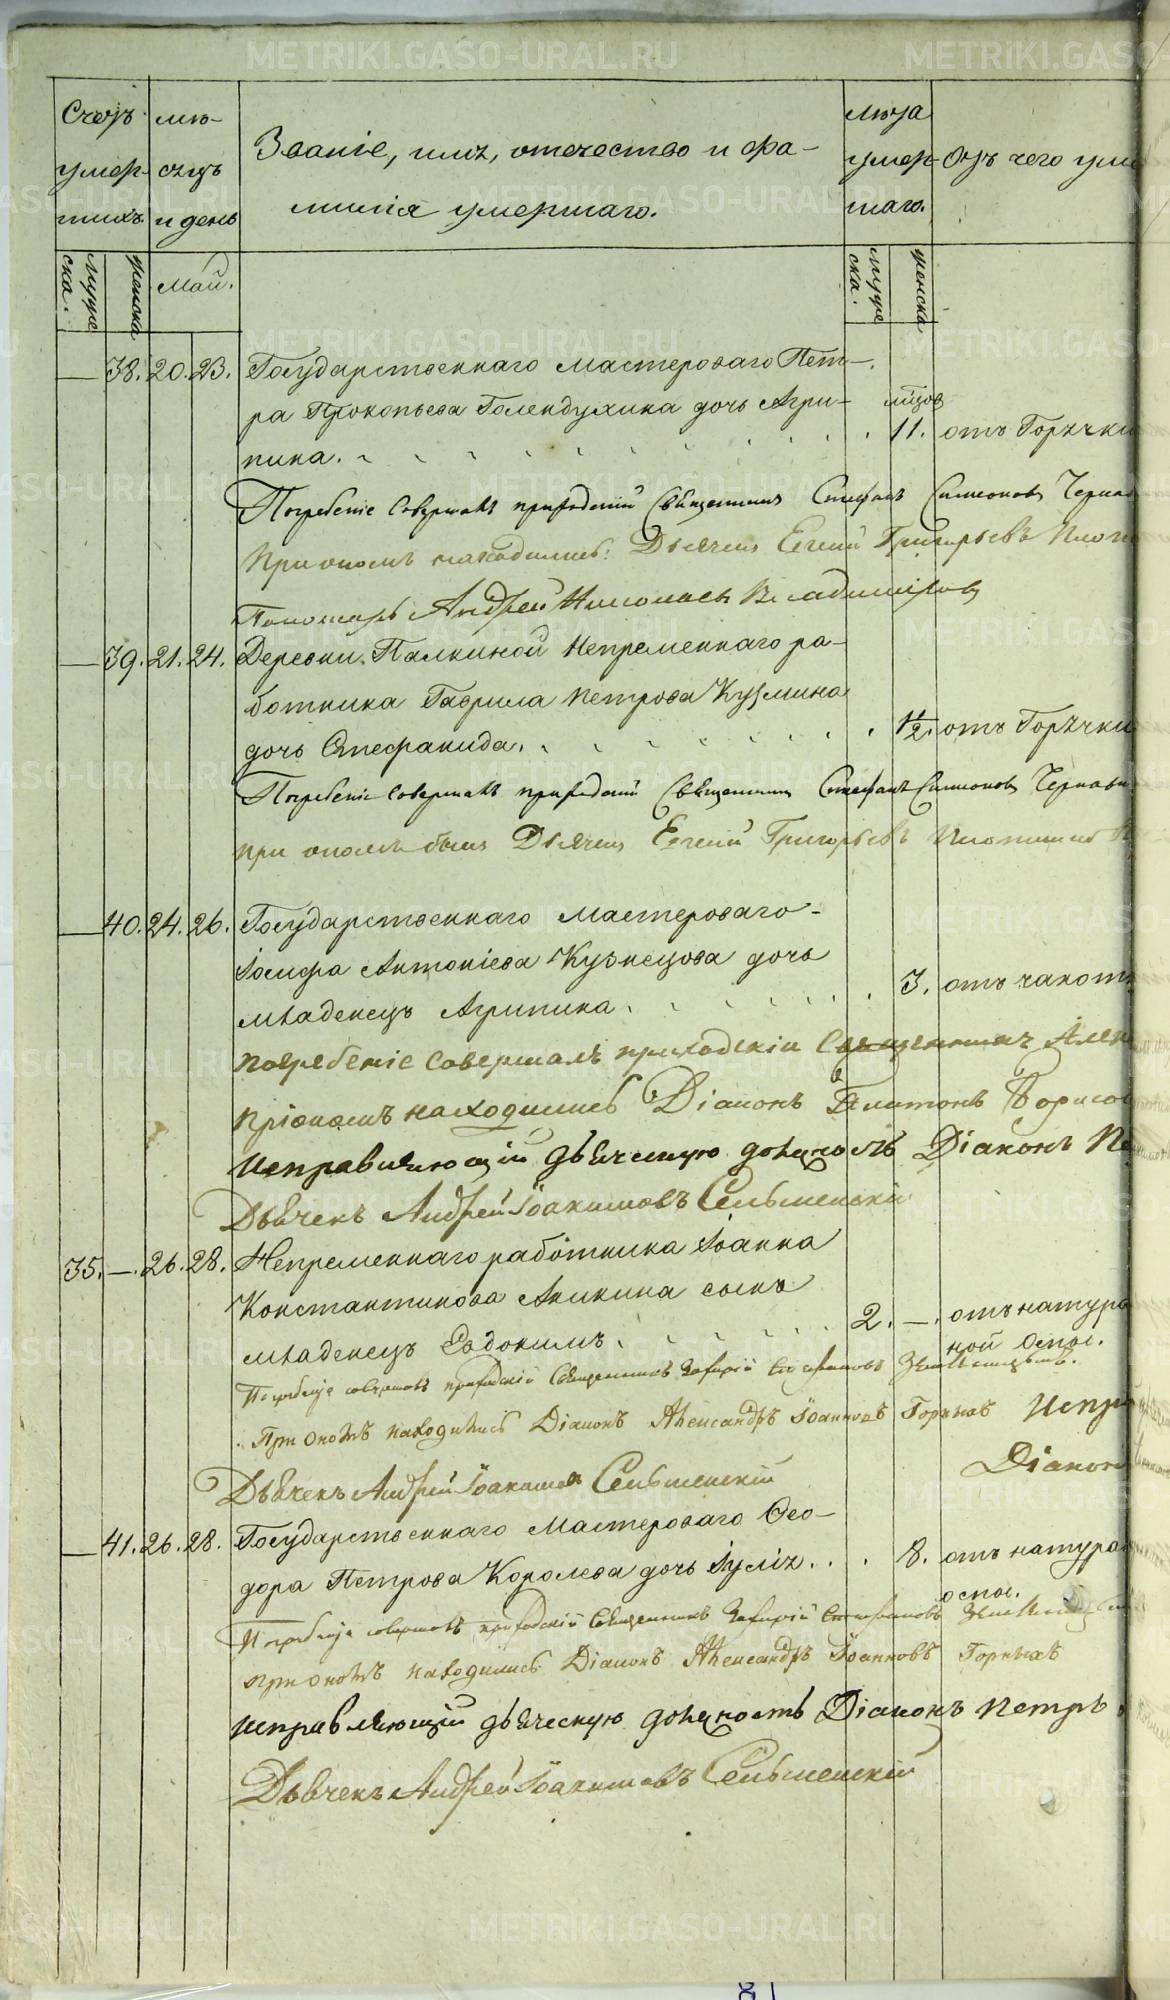 METRIKI.GASO-URAL.RU
Счетъ умер- шихъ
мѣ- сяцъ и день
Званіе, имя, отечество и фа-
милія умершаго.
лѣта умер- шаго.
Отъ чего уме
муже ска.
женска
Май.
муже ска.
женска
— 38. 20. 23. Государственнаго мастероваго Пет-
ра Прокопьева Голендухина дочь Агри- мѣсяцов
пина. 11. отъ Горячки
Погребеніе совершалъ приходскій Священникъ Стефанъ Симеоновъ Черна
При ономъ находились: Дьячекъ Евгеній Григорьевъ Плот
Пономарь Андрей Николаевъ Владиміровъ
— 39. 21. 24. Деревни Палкиной Непременнаго ра-
ботника Гаврила Петрова Кузмина
дочь Стефанида. 1/2. отъ Горячки
Погребеніе совершалъ приходскій Священникъ Стефанъ Симеоновъ Чернав
при ономъ былъ Дьячекъ Евгеній Григорьевъ
— 40. 24. 26. Государственнаго мастероваго-
Іосифа Антоніева Кузнецова дочь
младенецъ Агрипина. 3. отъ чахот
погребеніе совершалъ приходскій Священникъ Алек
пріономъ находились Діаконъ Платонъ Борисов
Исправляющій дьяческую должность Діаконъ Пе
Дьячекъ Андрей Іоакимовъ Сельменскій
35. —. 26. 28. Непременнаго работника Іоанна
Константинова Аникина сынъ
младенецъ Евдокимъ. 2. —. отъ натура
ной оспы.
Погребеніе совершалъ приходскій Священникъ Захарій Стефановъ
При ономъ находились Діаконъ Александръ Іоанновъ Горныхъ Испра
Діаконъ
Дьячекъ Андрей Іоакимовъ Сельменскій
— 41. 26. 28. Государственнаго мастероваго Ѳео-
дора Петрова Королева дочь Іулія. 8. отъ натура
оспы.
Погребеніе совершалъ приходскій Священникъ Захарій Стефановъ
при ономъ находились Діаконъ Александръ Іоанновъ Горныхъ
исправляющій дьяческую должность Діаконъ Петръ
Дьячекъ Андрей Іоакимовъ Сельменскій